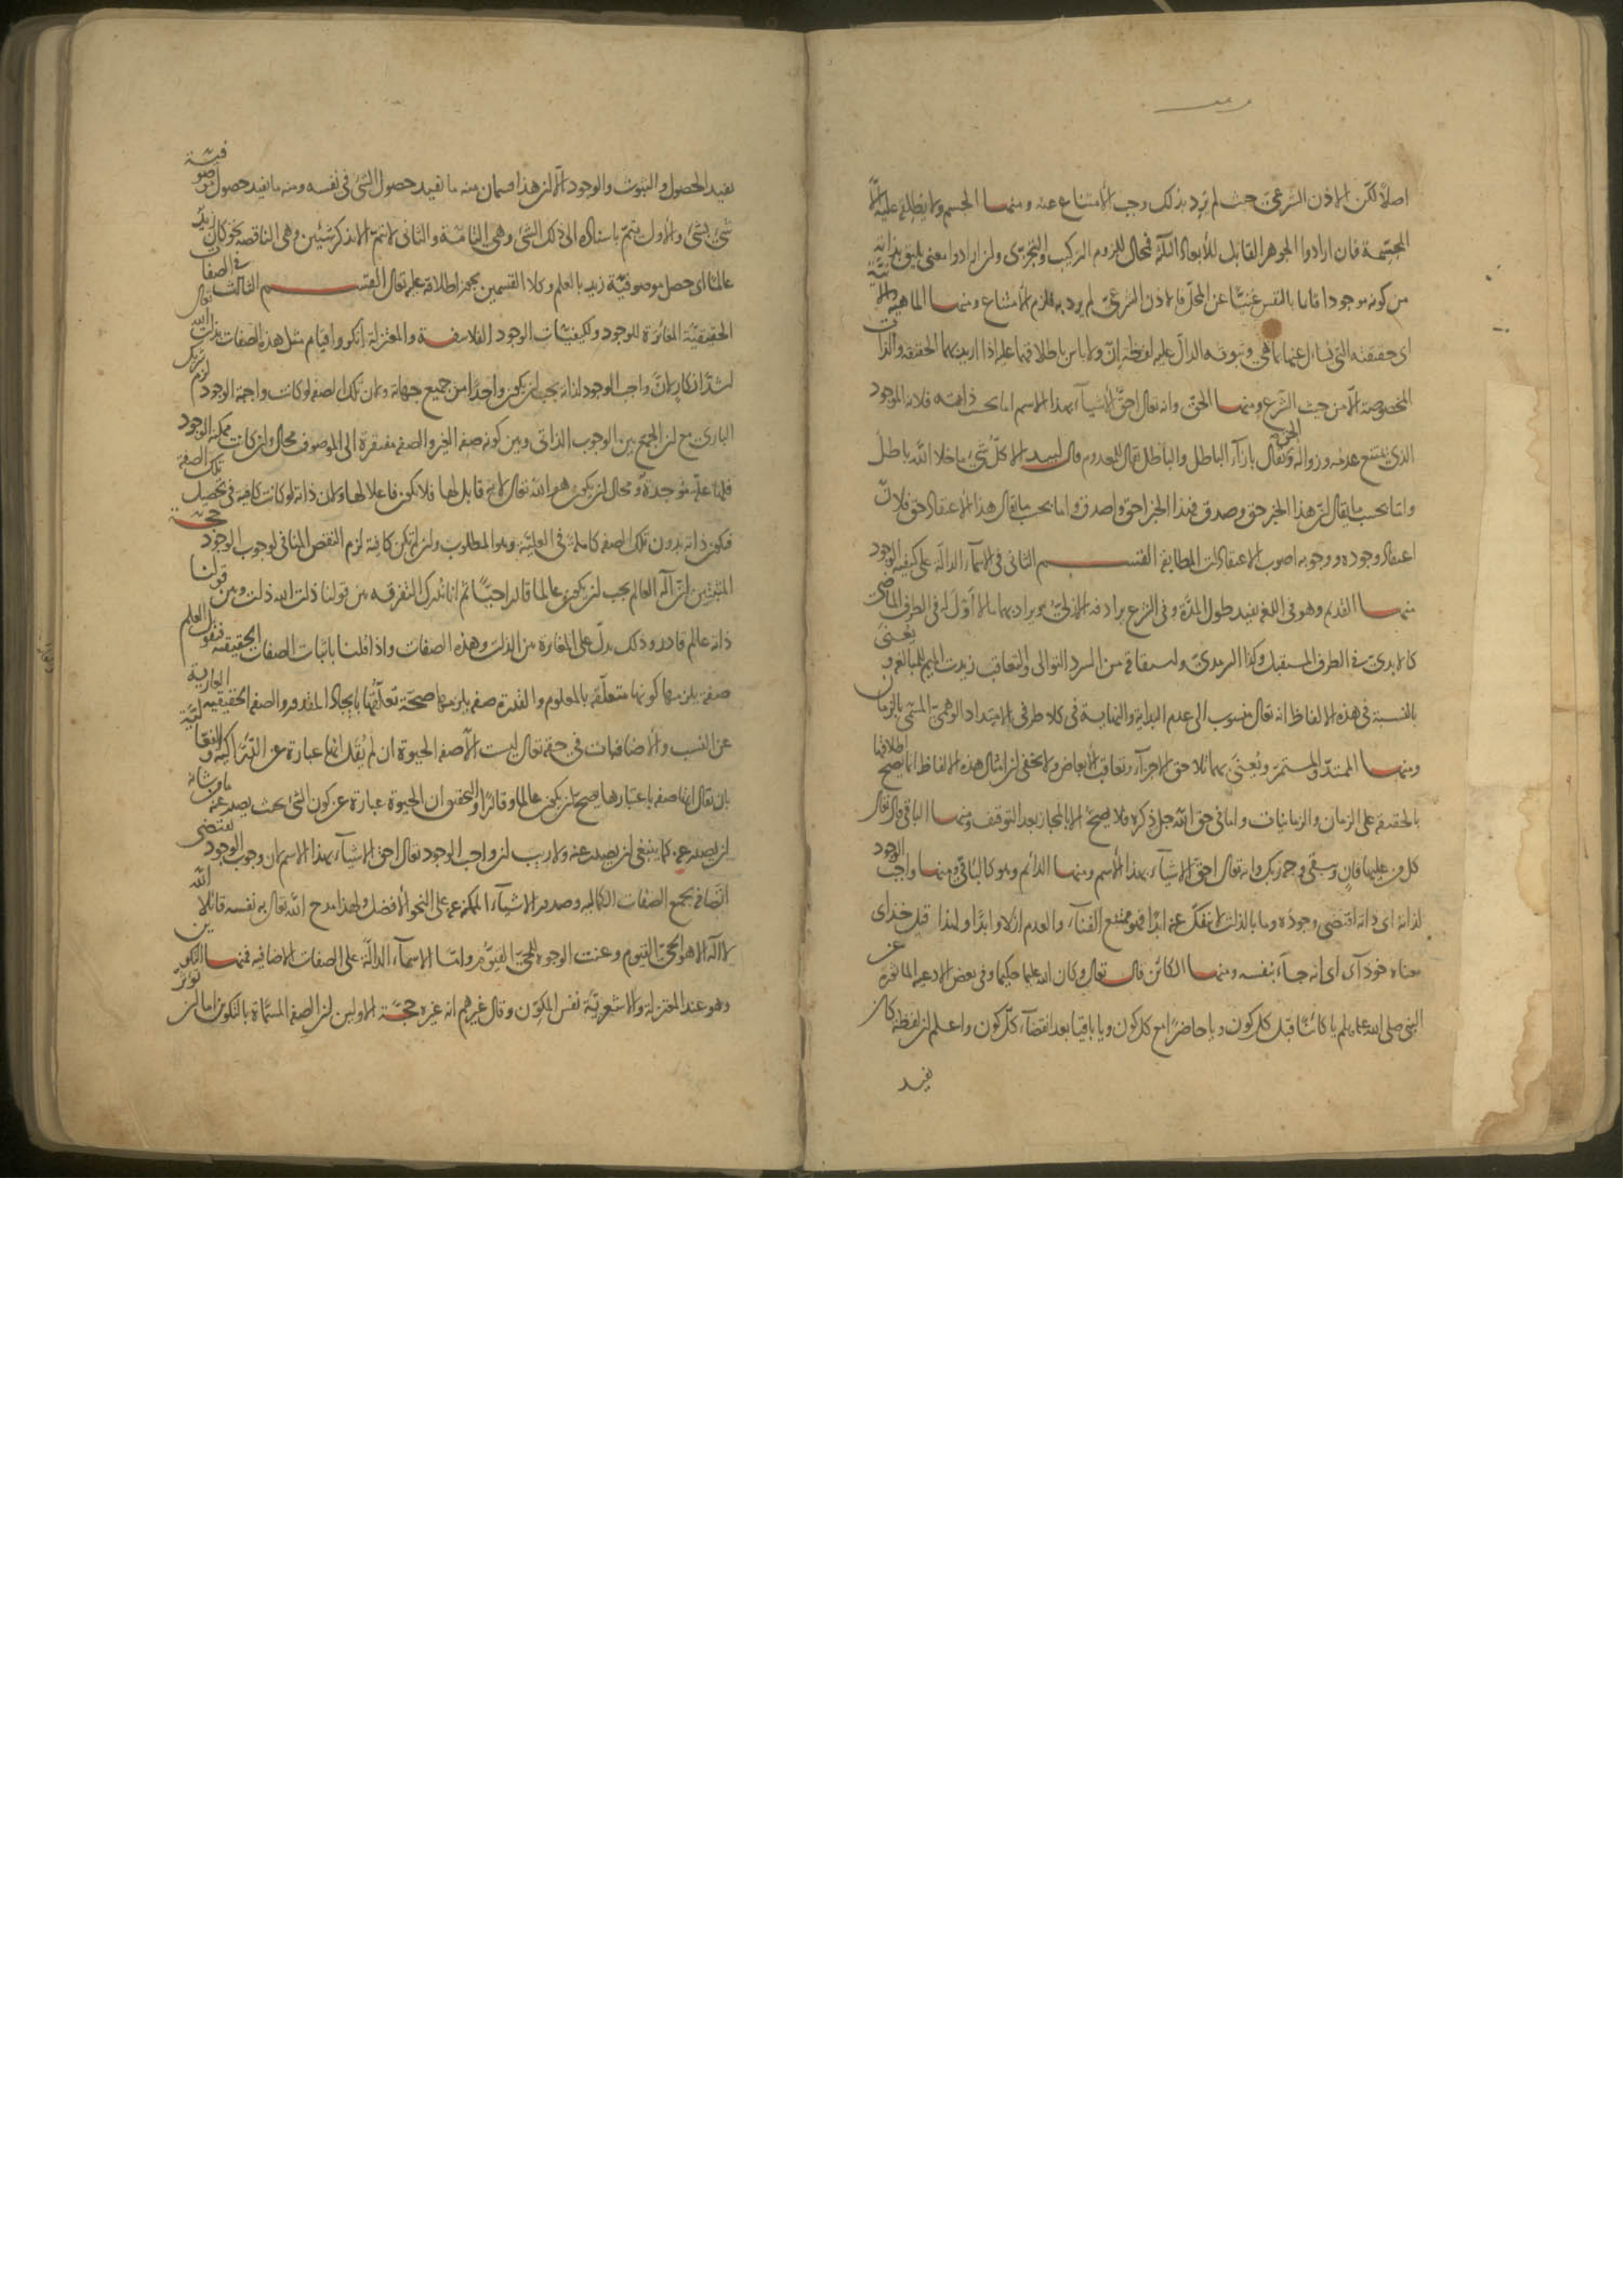 اصلا لكن الاذن الشرعي حيث لم يرد بذلك وجب الامتناع عنه ومنها الجسم ولا يطلقه عليه الا
المجسمة فان ارادوا الجوهر القابل للأبعاد الثلثة فمحال للزوم التركيب والتجزى وان ارادوا معنى يليق بذاته
من كونه موجودا قائما بالنفس غنيا عن المحل فالاذن الشرعي لم يرد به فلزم الامتناع ومنها الماهية
اى حقيقته التي يسأل عنها بما هي وثبوته الدال عليه لفظة ان ولا باس باطلاقها عليه اذا اريد بهما الحقيقة والذات
المخصوصة الا من حيث الشرع ومنها الحق وانه تعالى احق الاشياء بهذا الاسم اما بحسب ذاته فلانه الموجود
الذى يمتنع عدمه وزواله والحق يقال بازاء الباطل والباطل يقال للمعدوم قال لبيد الا كل شيء ما خلا الله باطل
واما بحسب ما يقال ان هذا الخبر حق وصدق فهذا الخبر احق واصدق واما بحسب ما يقال هذا الاعتقاد حق فلان
اعتقاد وجوده ووجوبه اصوب الاعتقادات المطابقة القسم الثانى فى الاسماء الدالة على كيفية الوجود
منها القديم وهو فى اللغة يفيد طول المدة وفى الشرع يرادفه الازلى ويراد بهما ما لا اول له فى الطرف الماضى
كالابدى فى الطرف المستقبل وكذا السرمدى واشتقاقه من السرد التوالى والتعاقب زيدت الميم للمبالغة ويعنى
بالنسبة فى هذه الالفاظ انه تعالى منسوب الى عدم البداية والنهاية فى كلا طرفى الامتداد الوهمى المسمى بالزمان
ومنها الممتد والمستمر ويعنى بهما تلاحق الاجزاء وتعاقب الأبعاض ولا يخفى ان امثال هذه الالفاظ انما يصح اطلاقها
بالحقيقة على الزمان والزمانيات واما فى حق الله جل ذكره فلا يصح الا بالمجاز بعد التوقيف ومنها الباقى قال تعالى
كل من عليها فان ويبقى وجه ربك وانه تعالى احق الاشياء بهذا الأسم ومنها الدائم وهو كالباقى ومنها واجب الوجود
لذاته اى ذاته اقتضى وجوده وما بالذات لا ينفك عنه ابدا فهو ممتنع الفناء والعدم ازلا وابدا ولهذا قيل خداى
معناه خود آى اى انه جاء بنفسه ومنها الكائن قال تعالى وكان الله عليما حكيما وفى بعض الادعية الماثورة عن
النبى صلى الله عليه وسلم يا كائنا قبل كل كون ويا حاضرا مع كل كون ويا باقيا بعد انقضاء كل كون واعلم ان لفظة كان
يفيد
يفيد الحصول والثبوت والوجود الا ان هذا قسمان منه ما يفيد حصول الشئ فى نفسه ومنه ما يفيد حصول موصوفية
شئ بشئ والأول يتم باسناده الى ذلك الشئ وهى التامة والثانى لا يتم الا بذكر شيئين وهى الناقصة نحو كان زيد
عالما اى حصل موصوفية زيد بالعلم وكلا القسمين يجوز اطلاقه عليه تعالى القسم الثالث فى الصفات
الحقيقية المغايرة للوجود ولكيفيات الوجود الفلاسفة والمعتزلة انكروا قيام مثل هذه الصفات بذات الله تعالى
اشد انكار لان واجب الوجود لذاته يجب ان يكون واحدا من جميع جهاته ولان تلك الصفة لو كانت واجبة الوجود لزم
البارئ مع ان الجمع بين الوجوب الذاتى وبين كونه صفة الغير والصفة مفتقرة الى الموصوف محال وان كانت ممكنة الوجود
فلها علة موجدة ومحال ان يكون هو الله تعالى لانه قابل لها فلا يكون فاعلا لها ولان ذاته لو كانت كافية فى تحصيل تلك الصفة
فيكون ذاته بدون تلك الصفة كاملة فى العلية وهو المطلوب وان لم يكن كافية لزم النقص المنافى لوجوب الوجود حجة
المثبتين ان اله العالم يجب ان يكون عالما قادرا حيا ثم انا ندرك التفرقة بين قولنا ذات الله ذات وبين قولنا
ذاته عالم قادر وذلك يدل على المغايرة بين الذات وهذه الصفات واذا قلنا باثبات الصفات الحقيقية فنقول العلم
صفة يلزمها كونها متعلقة بالمعلوم والقدرة صفة يلزمها صحة تعلقها بايجاد المقدور والصفة الحقيقية العارية
عن النسب والاضافات فى حقه تعالى ليست الا صفة الحيوة ان لم يقل انها عبارة عن الدراكية والفعالية
بان يقال انها صفة باعتبارها يصح ان يكون عالما وقادرا والتحقيق ان الحيوة عبارة عن كون الشئ بحيث يصدر عنه ما من شانه
ان يصدر عنه كما ينبغى ان يصدر عنه ولا ريب ان واجب الوجود تعالى احق الاشياء بهذا الاسم لان وجوب الوجود يقتضى
اتصافه بجميع الصفات الكمالية وصدور الاشياء الممكنة عنه على النحو الأفضل ولهذا مدح الله تعالى به نفسه قائلا الله
لا اله الا هو الحى القيوم وعنت الوجوه للحى القيوم واما الاسماء الدالة على الصفات الاضافية فمنها التكوين
وهو عند المعتزلة والاشعرية نفس المكون وقال غيرهم انه غيره حجة الاولين ان الصفة المسماة بالتكوين اما ان تؤثر